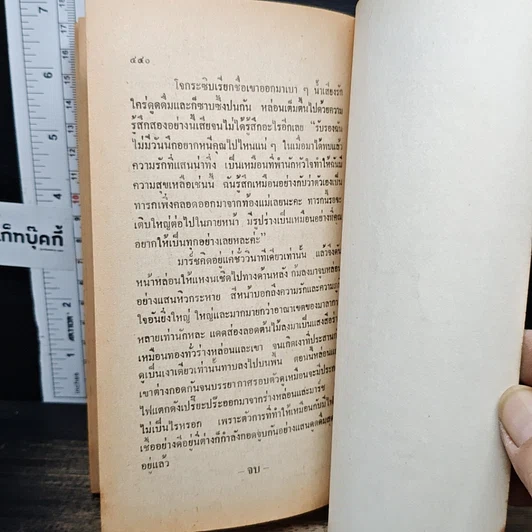 ๔๕๐
โจกระซิบเรียกชื่อเขาออกมาเบา ๆ น้ำเสียงรัก
ใคร่ดูดดื่มและก็ซาบซึ้งปนกัน หล่อนเต็มตื้นไปด้วยความ
รู้สึกสองอย่างนี้เสียจนไม่ได้รู้สึกอะไรอีกเลย "รับรองฉัน
ไม่มีวันนึกอยากหนีคุณไปไหนแน่ ๆ ในเมื่อมาได้พบแล้ว
ความรักที่แสนน่าทึ่ง เป็นเหมือนที่พำนักหัวใจทำให้ฉันมี
ความสุขเหลือเช่นนี้ ฉันรู้สึกเหมือนอย่างกับว่าตัวเองเป็น
ทารกเพิ่งคลอดออกมาจากท้องแม่เลยนะคะ ทารกนี้รอจะ
เติบใหญ่ต่อไปในภายหน้า มีรูปร่างเป็นเหมือนอย่างที่คุณ
อยากให้เป็นทุกอย่างเลยหละค่ะ"
มาร์ชคิดอยู่แค่ชั่ววินาทีเดียวเท่านั้น แล้วจึงดัน
หน้าหล่อนให้แหงนเชิดไปทางด้านหลัง ก้มลงมาจูบหล่อน
อย่างแสนหิวกระหาย สีหน้าบอกถึงความรักและความ
ใจอันยิ่งใหญ่ ใหญ่และมากมายกว่าอาณาเขตของมาลากา
หลายเท่านักหละ แดดส่องลอดต้นไม้ลงมาเป็นแสงสีอร่าม
เหมือนทองทั่วร่างหล่อนและเขา จนเกิดเงาที่ประสาน
ดูเป็นเงาเดียวเท่านั้นทาบลงไปบนพื้น ตอนที่หล่อนและ
เขาต่างกอดกันจนบรรยากาศรอบตัวดูเหมือนจะมีประกาย
ไฟแตกดังเปรี๊ยะประออกมาจากร่างหล่อนและมาร์ช
ไม่เป็นไรหรอก เพราะตัวการที่ทำให้เหมือนกับมีไฟ
เชื้ออย่างดีอยู่นี่ต่างก็กำลังกอดจูบกันอย่างแสนดูดดื่ม
อยู่แล้ว
– จบ –
เก็ทบุ๊คกี้